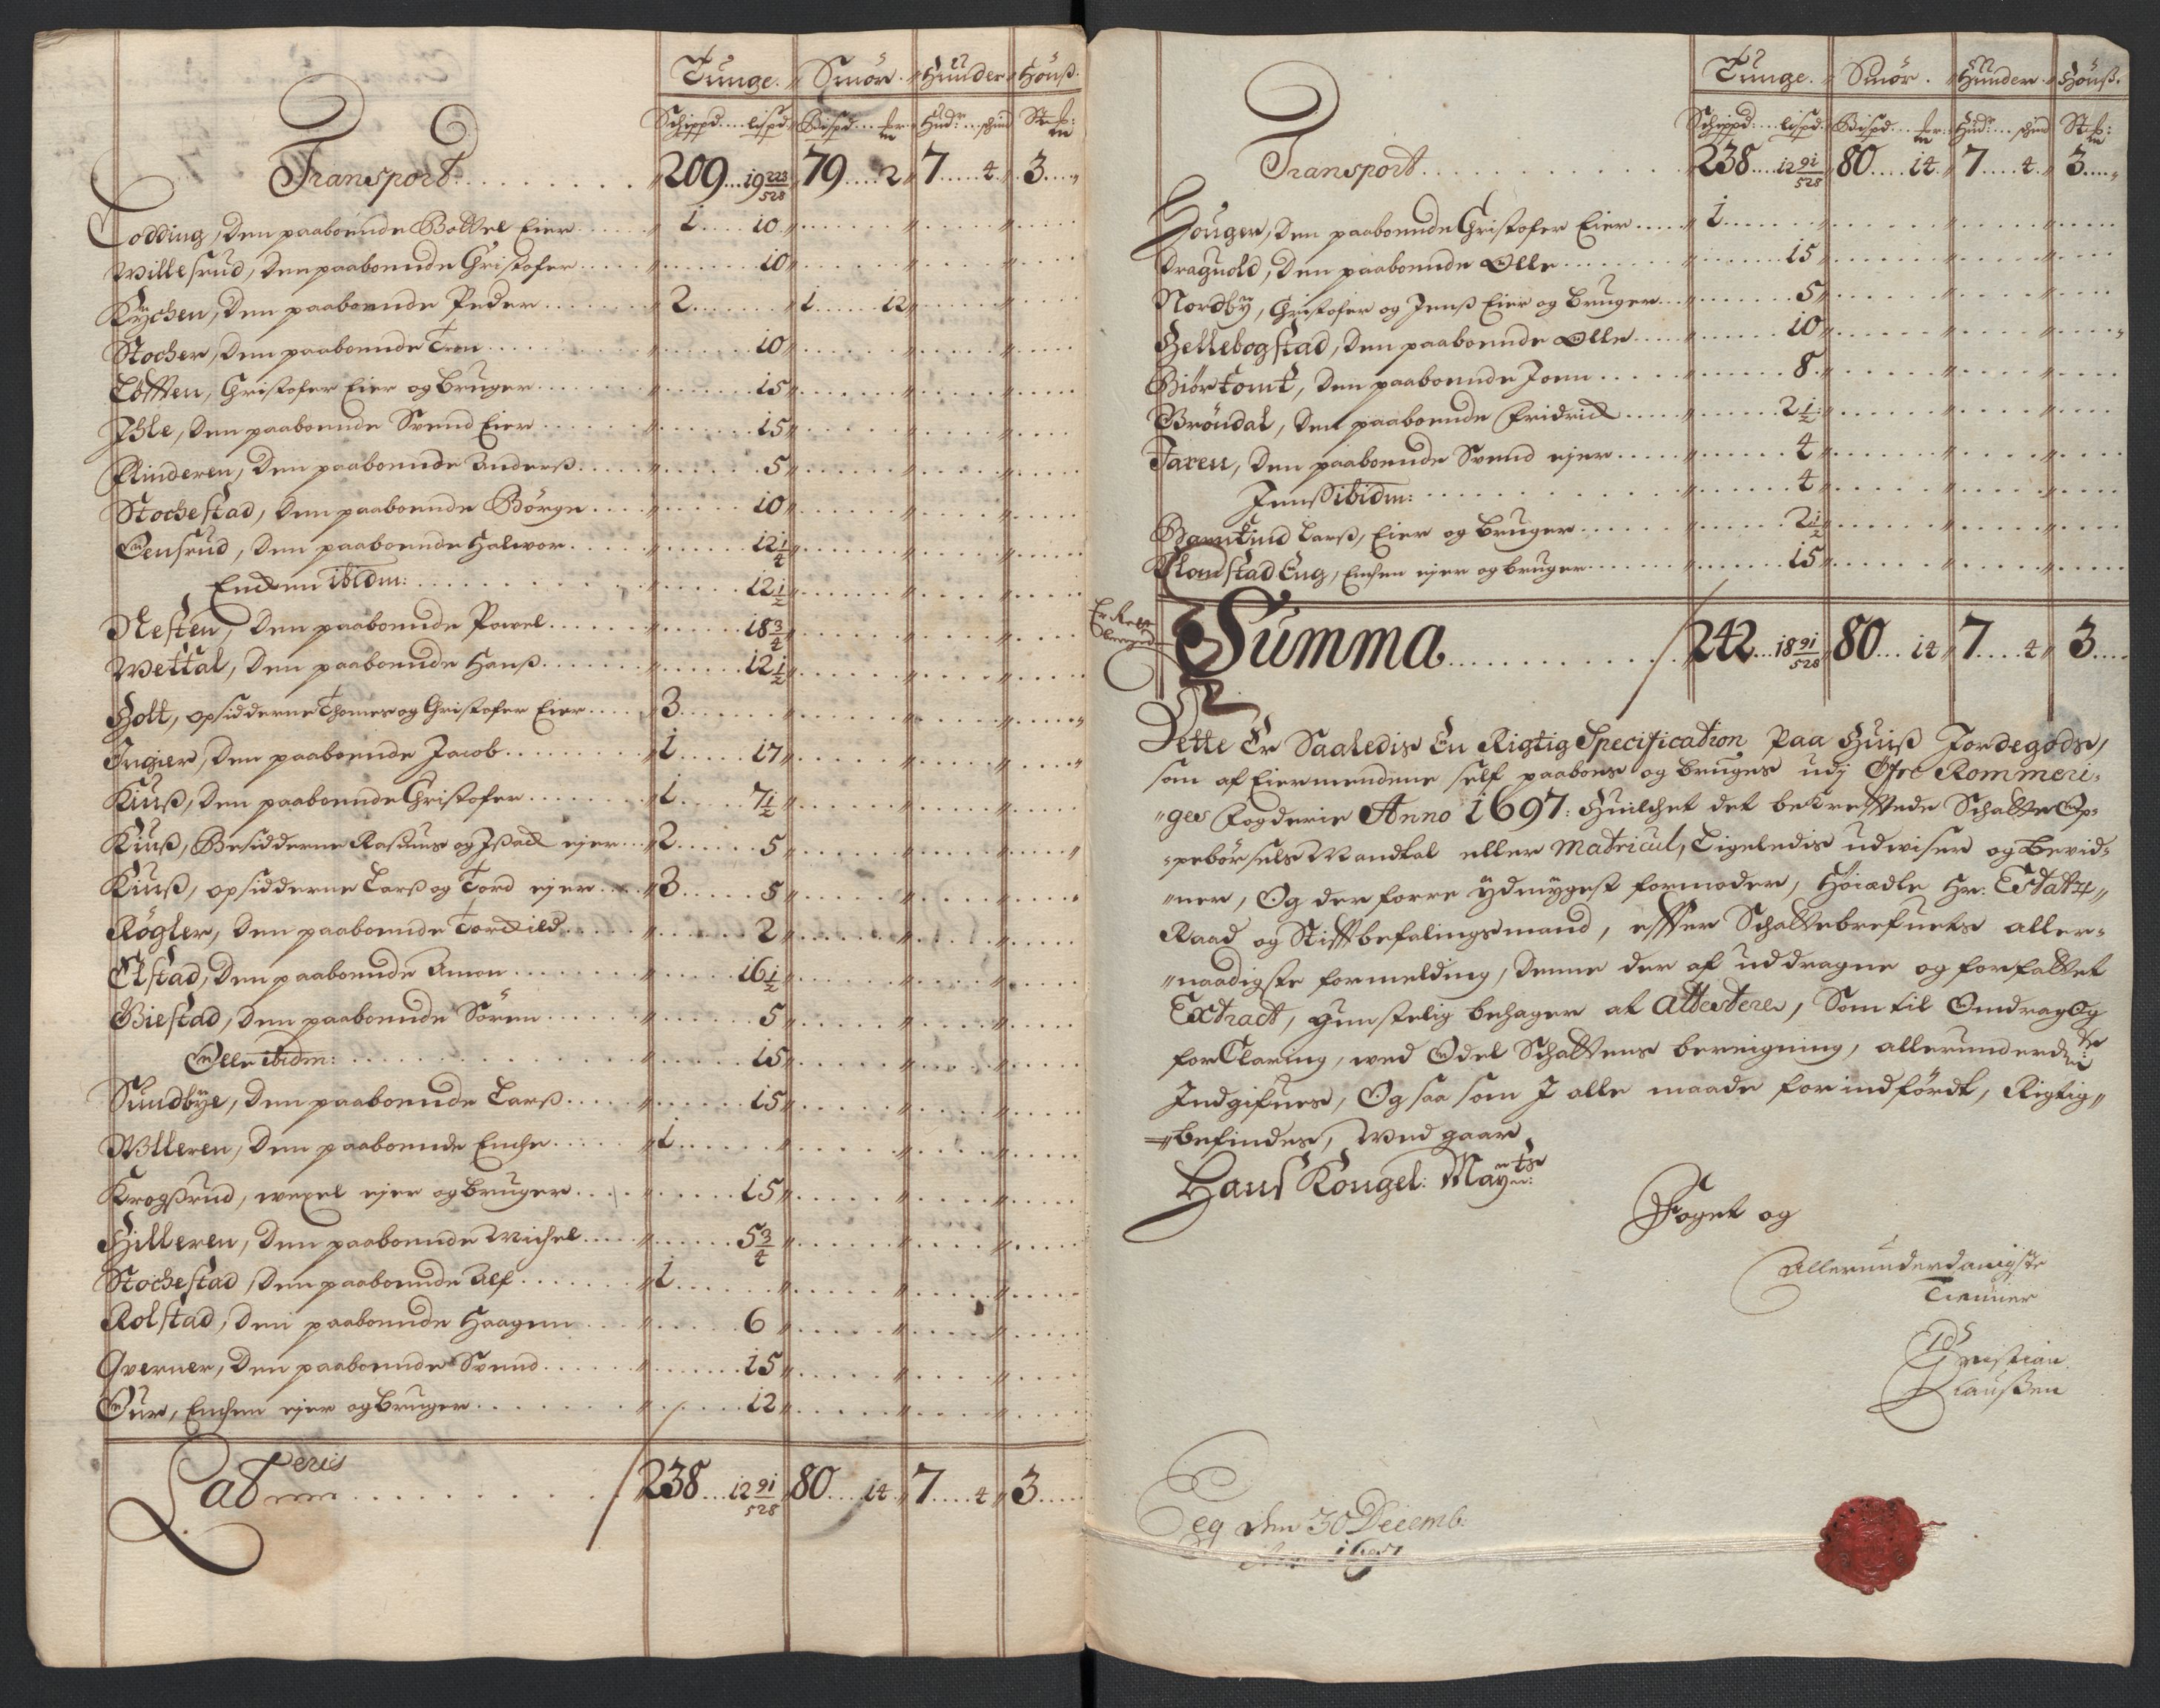 Tunge. Smör. Huuder Houß.
Schippd....lispd. Bispd... Hud...schind St
Transport......... 209...19 223/528 79....2 7.....4. 3....
Lodding, den paaboende Bottel Eier..... 1....10
Willesrud, den paaboende Christofer..... 10
Kychen, den paaboende Peder....... 2....... 1.....12
Stocher, den paaboende 10
Löfften, Christofer Eier og bruger...... 15
Ihle, den paaboende Svend Eier...... 15
Flinderen, den paaboende Anderß..... 5
Stochestad, den paaboende Börge.... 10
Eensrud, den paaboende Halwor..... 12 1/4
Endten ibidm:............ 12 1/2
Nesten, den paaboende Powel..... 18 3/4
Wettal, den paaboende Hanß...... 12 1/2
Holt, opsidderne Thomes og Christofer Eier.... 3......
Ingier, den paaboende Jacob........ 1....17
Kiuß, den paaboende Christofer...... 1....7 1/2
Kiuß, Besidderne Rasmus og Jsach ejer... 2.....5
Kiuß, opsidderne Larß og Tord ejer.... 3.....5
Rögler, den paaboende Tordild..... 2
Elstad, den paaboende Amon....... 16 1/2
Biestad, den paaboende Sören...... 5
Olle ibidm:.............. 15
Sundbye, den paaboende Larß..... 15
Wlleren, den paaboende Enche..... 1......
Krogßrud, wexel ejer og bruger.... 15
Hilleren, den paaboende Michel.... 5 3/4
Stochestad, den paaboende Alf....... 1......
Rolstad, den paaboende Haagen... 6
Qverner, den paaboende Svend..... 15
Our, Enchen ejer og bruger....... 12
Lateris......... 238...12 91/528 80...14 7....4 3.....
Tunge. Smör. Huuder. Houß.
Schippd....lispd. Bispd... Hud...schind St
Transport............ 238....12 91/528 80....14 7....4. 3....
Houger, den paaboende Christofer Eier..... 1.....
Dragvold, den paaboende Olle........ 15
Nordby, Christofer og Jenß Eier og bruger.. 5
Hellebogstad, den paaboende Olle..... 10
Biörtomt, den paaboende Joen..... 8
Bröndal, den paaboende Fridrich..... 2 1/2
Jaren, den paaboende Svend ejer..... 4
Jenß ibidm:........... 4
Larß, Eier og bruger....... 2 1/2
Eng, Enchen ejer og bruger...... 15
Er Rett
Summa.............. 242...18 91/528 80...14 7....4 3....
Dette Er Saaledis En Rigtig Specification Paa Huiß Jordegods,
som af Eiermendene self paaboes og bruges udj Öfre Rommeri-
ges Fogderie Anno 1697: Huilchet det bekrefftede Schatte Op-
pebörsels Mandtal eller Matricul, Ligeledis udwiser og bevid-
ner, Og derforre ydmygest formoder, Höiædle Hr: Estatz
Raad og Stiftbefalingsmand, effter Schattebrefuets aller-
naadigste formelding, denne der af uddragne og forfattet
Extract, gunstelig behager at Attestere, Som til Omdrag Og
forClaring, wed Odel Schattens bereigning, allerunderd
Indgifues, Og saa som J alle maade for indfördt, Rigtig
befindes, Wed gaar
Hans Kongel: May
Foget og
Allerunderdanigste
Tienner
Christian
Klaußen
Eeg den 30 Decemb:
Anno 1697